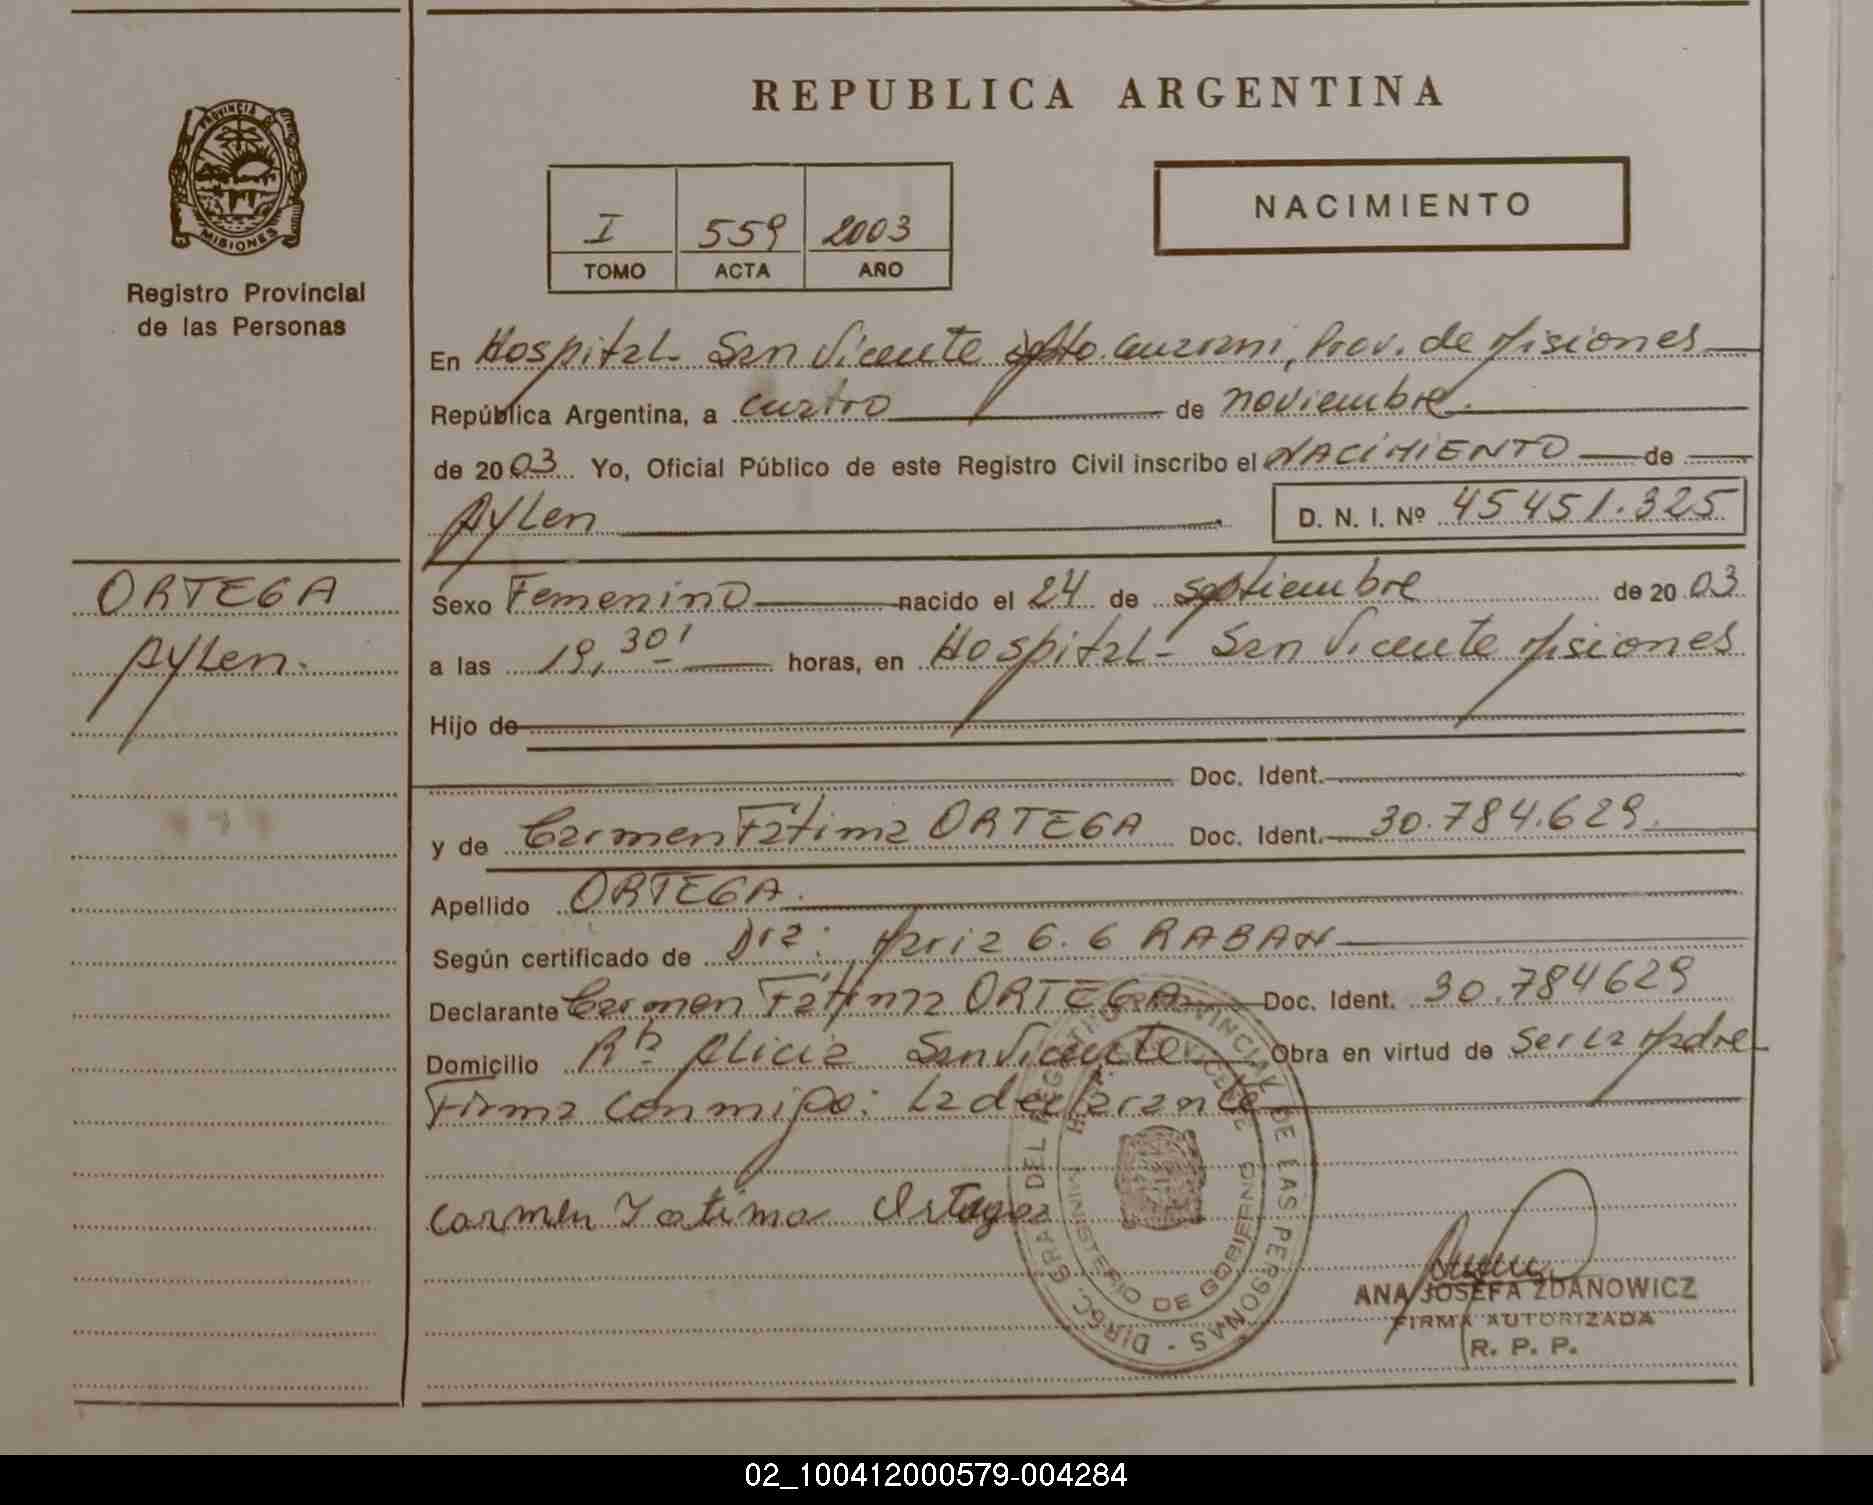 REPUBLICA ARGENTINA
PROVINCIA DE MISIONES
Registro Provincial
de las Personas
I 559 2003
TOMO ACTA AÑO
NACIMIENTO
En Hospital San Vicente Dpto. Guarani, Prov. de Misiones
República Argentina, a cuatro de noviembre.
de 2003 Yo, Oficial Público de este Registro Civil inscribo el NACIMIENTO de
Aylen
D. N. I. Nº 45451.325
ORTEGA
Aylen.
Sexo Femenino nacido el 24 de septiembre de 2003
a las 19,30' horas, en Hospital San Vicente Misiones
Hijo de
Doc. Ident.
y de Carmen Fátima ORTEGA Doc. Ident. 30.784.629.
Apellido ORTEGA.
Según certificado de Dra: Maria G. G RABAN
Declarante Carmen Fátima ORTEGA Doc. Ident. 30.784629
Domicilio Bº Alicia San Vicente Obra en virtud de Ser La Madre
Firma conmigo: La declarante
Carmen Fatima Ortega
DIREC. GRAL DEL REGISTRO PROVINCIAL DE LAS PERSONAS -
MINISTERIO DE GOBIERNO
ANA JOSEFA ZDANOWICZ
FIRMA AUTORIZADA
R. P. P.
02_100412000579-004284